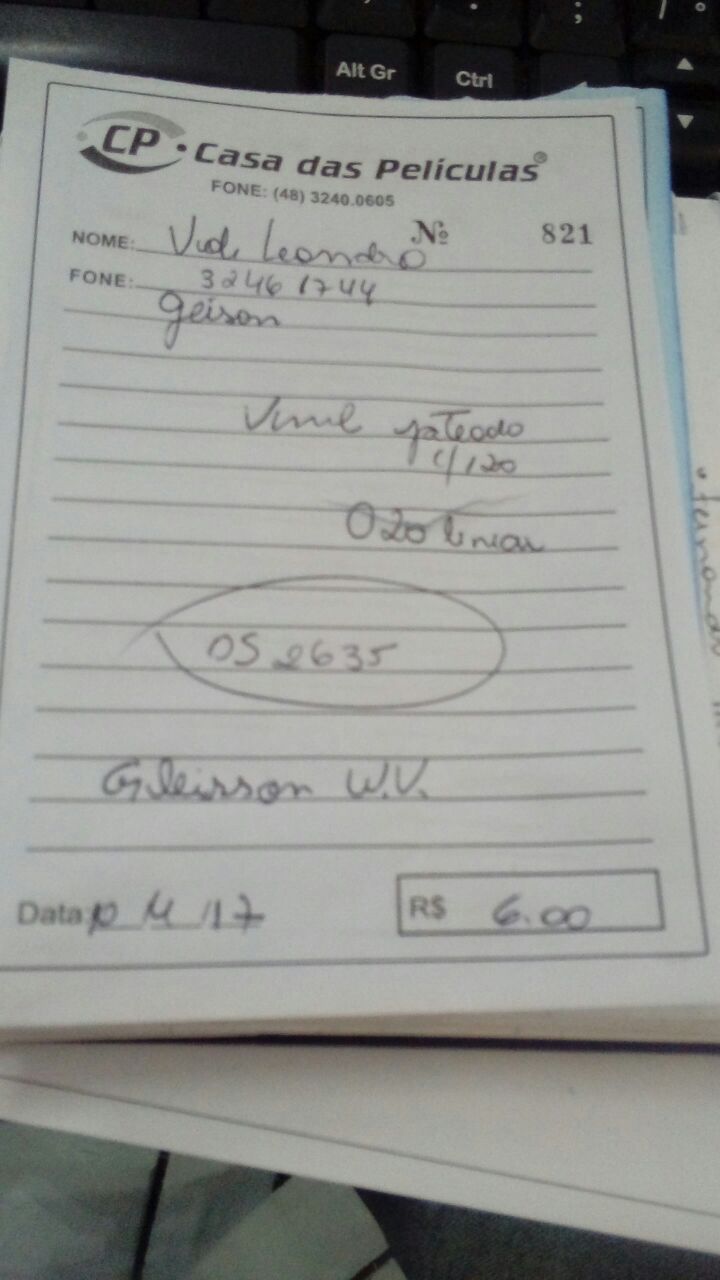 Alt Gr
Ctrl
CP Casa das Películas®
FONE: (48) 3240.0605
Nº 821
NOME: Leandro
FONE: 3246 1744
Geison
Vinil jateado
c/120
020 linear
OS 2635
Gleisson W.V.
Data 11 17
R$ 6.00